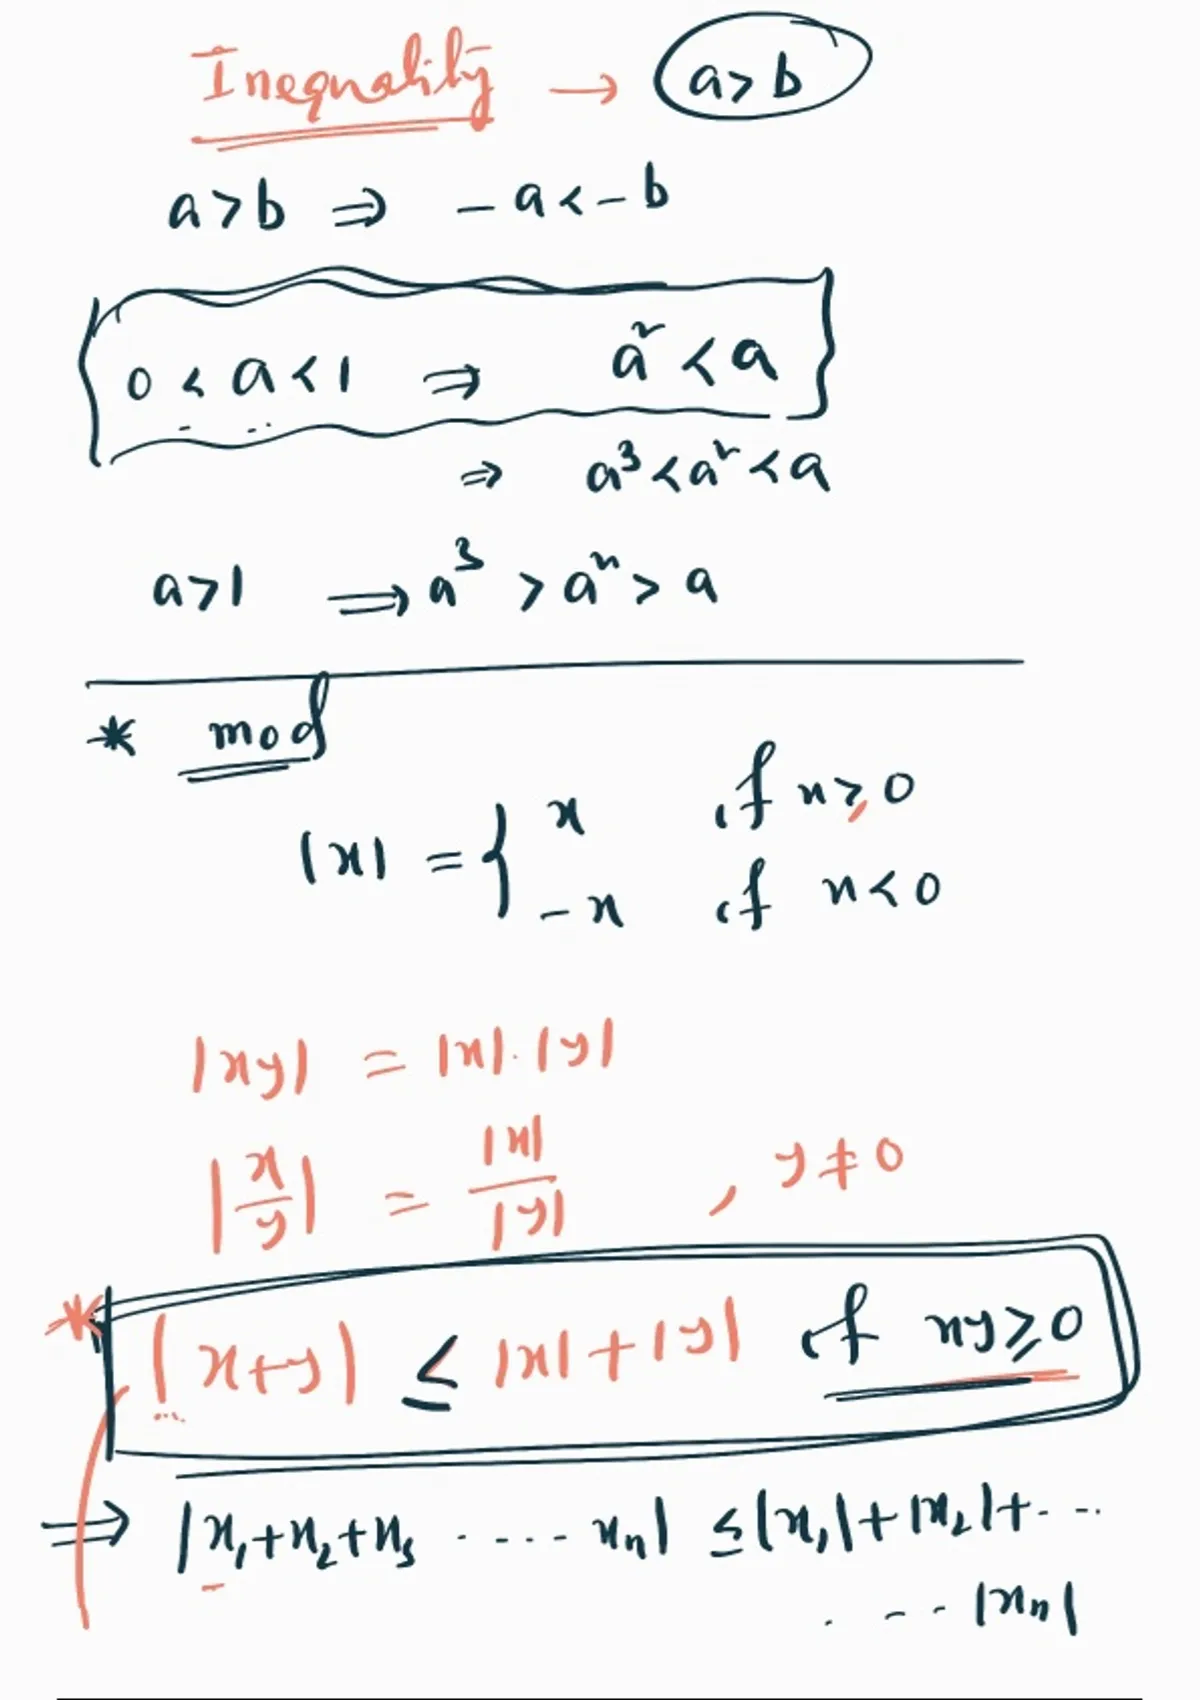 Inequality → a > b
a > b ⇒ - a < - b
0 < a < 1 ⇒ a² < a
⇒ a³ < a² < a
a > 1 ⟹ a³ > a² > a
* mod
|x| = { x if x ≥ 0
-x if x < 0
|xy| = |x|.|y|
|x/y| = |x|/|y| , y ≠ 0
* |x+y| ≤ |x| + |y| if xy ≥ 0
⇒ |x₁+x₂+x₃ ..... xₙ| ≤ |x₁|+|x₂|+...
.... |xₙ|